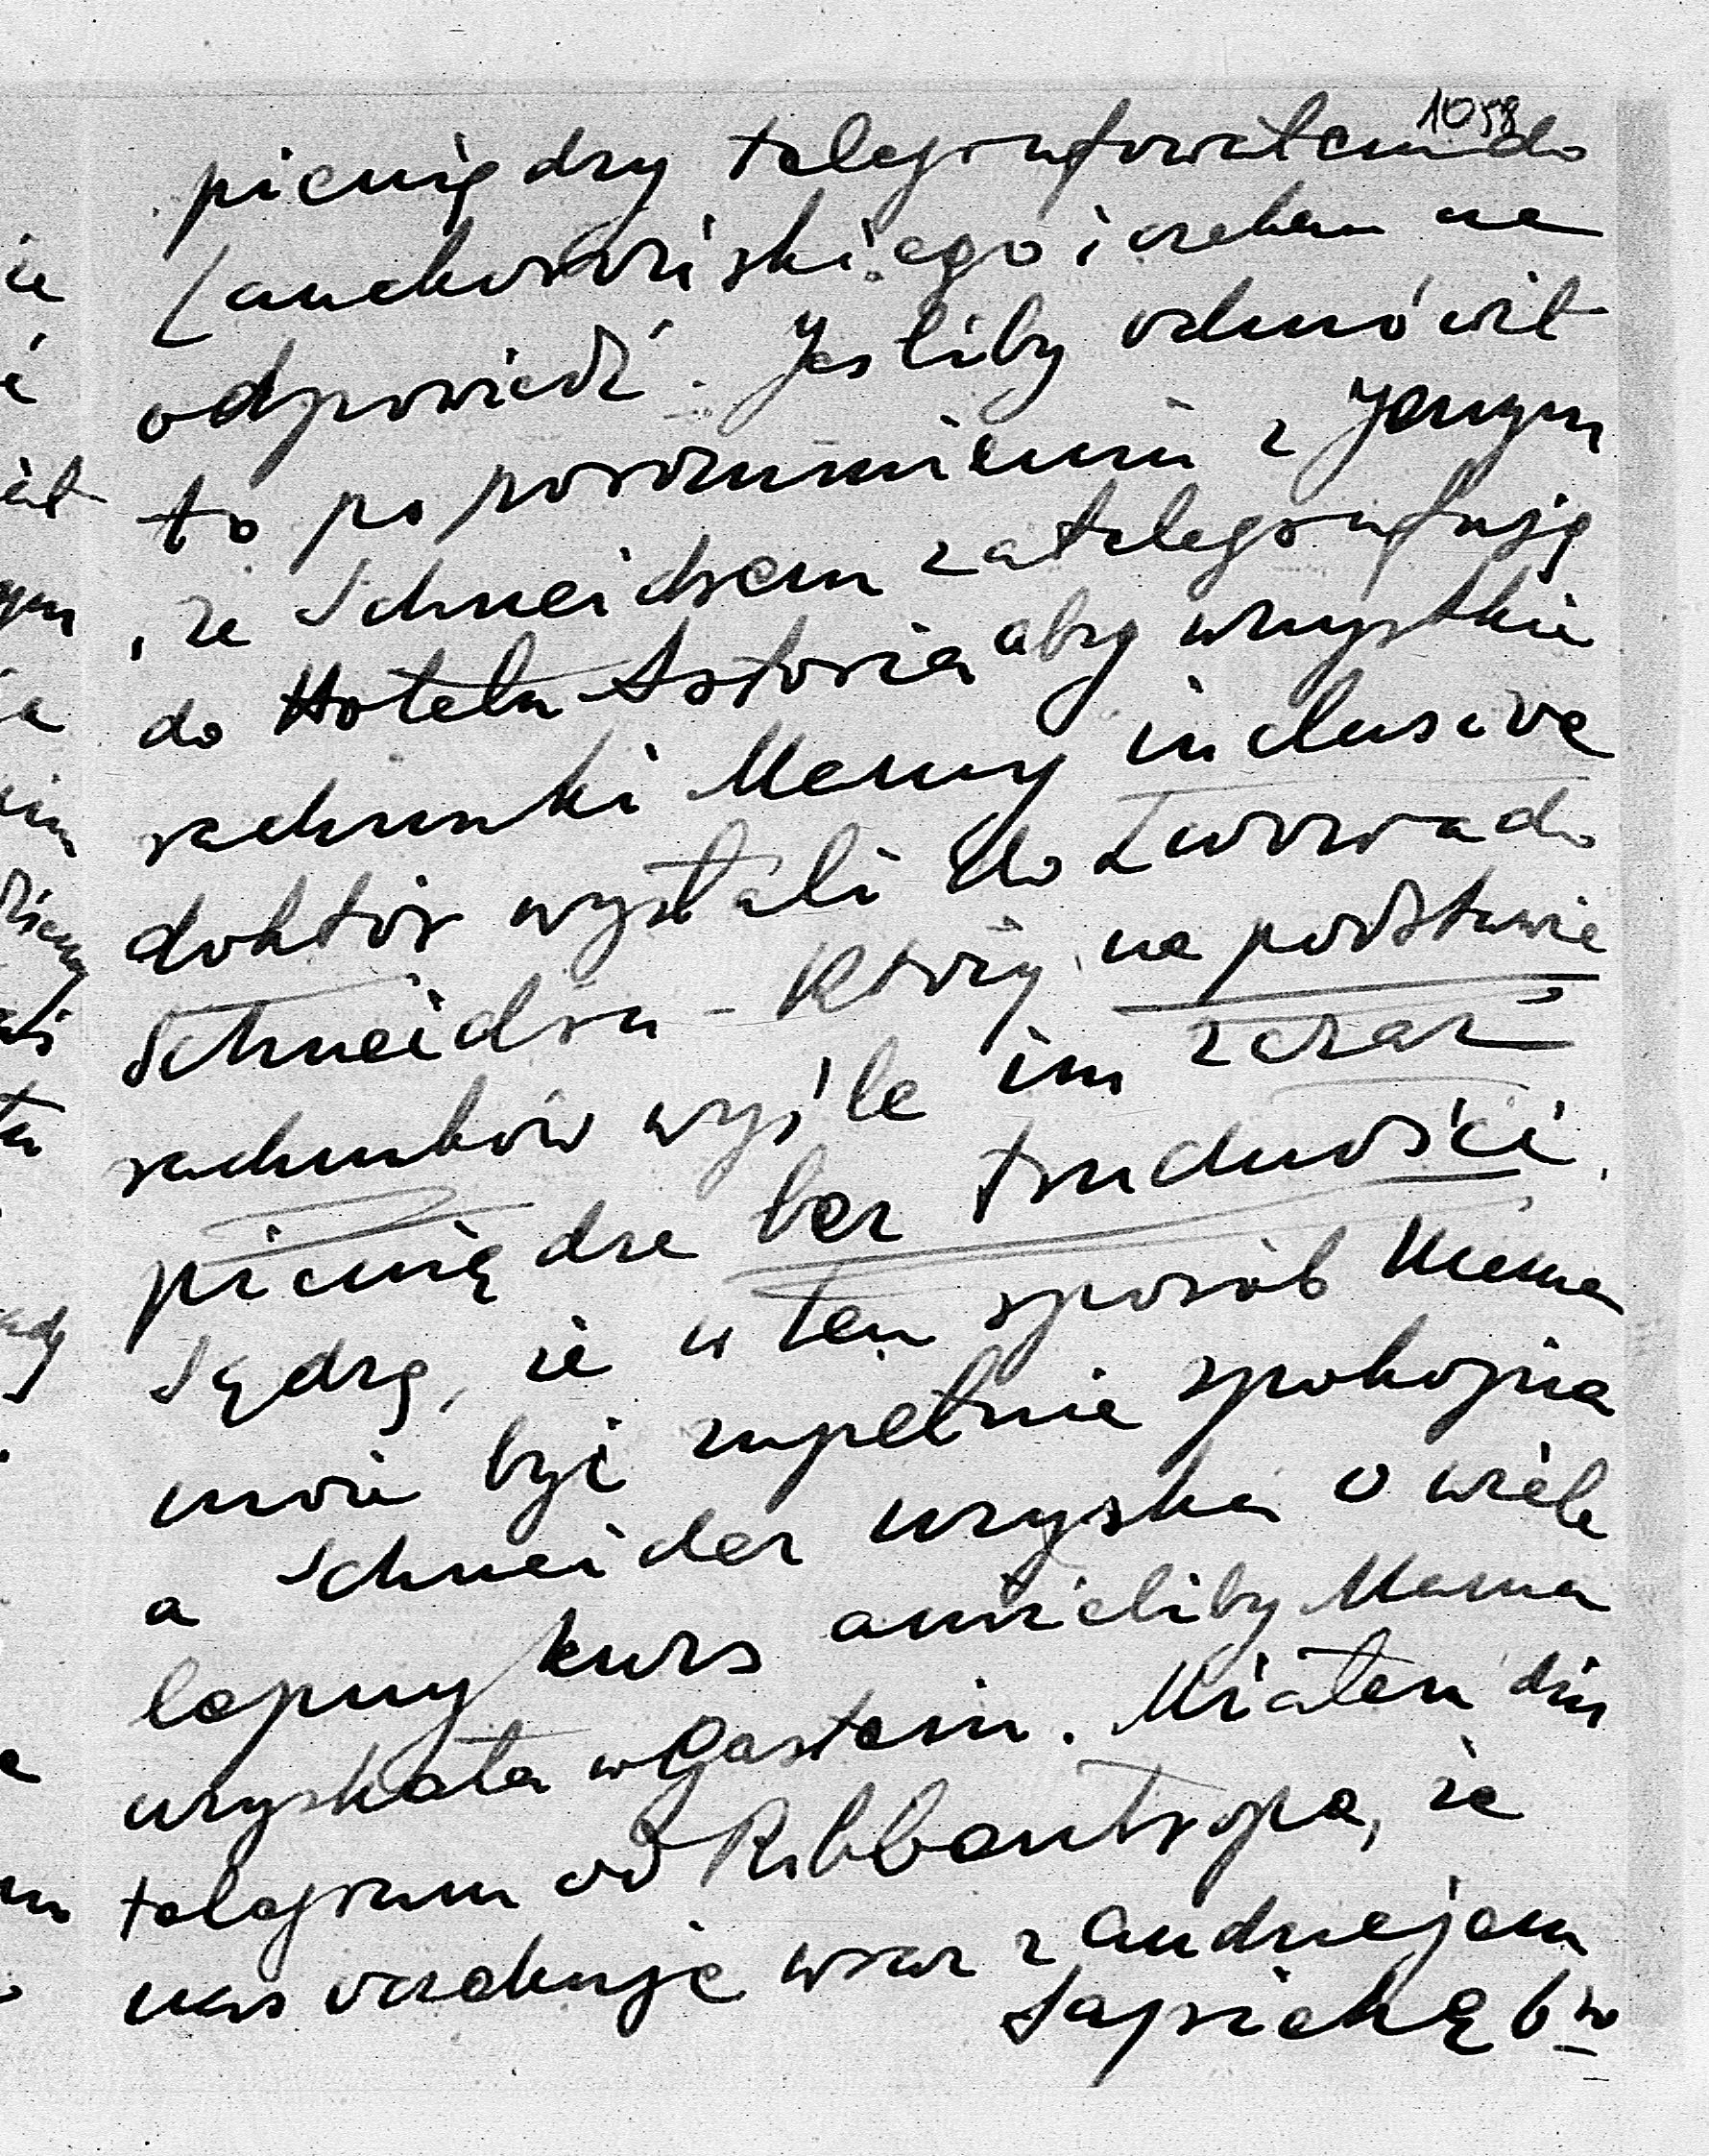 1058
pieniędzy telegrafowałem do
Lanckorońskiego i czekam na
odpowiedź. Jeśliby odmówił
to po porozumieniu z Jerzym
, ze Schneidrem zatelegrafuję
do Hotelu Astoria aby wszystkie
rachunki Mamy inclusive
doktór wysłali do Lwowa do
Schneidra – który na podstawie
rachunków wyśle im zaraz
pieniądze bez trudności.
Sądzę, że w ten sposób Mama
może być zupełnie spokojna
a Schneider uzyska o wiele
lepszy kurs aniżeliby Mama
uzyskała w Gastein. Miałem dziś
telegram od Ribbentropa, że
nas oczekuje wraz z Andrzejem
Sapiehą 6ᵍᵒ